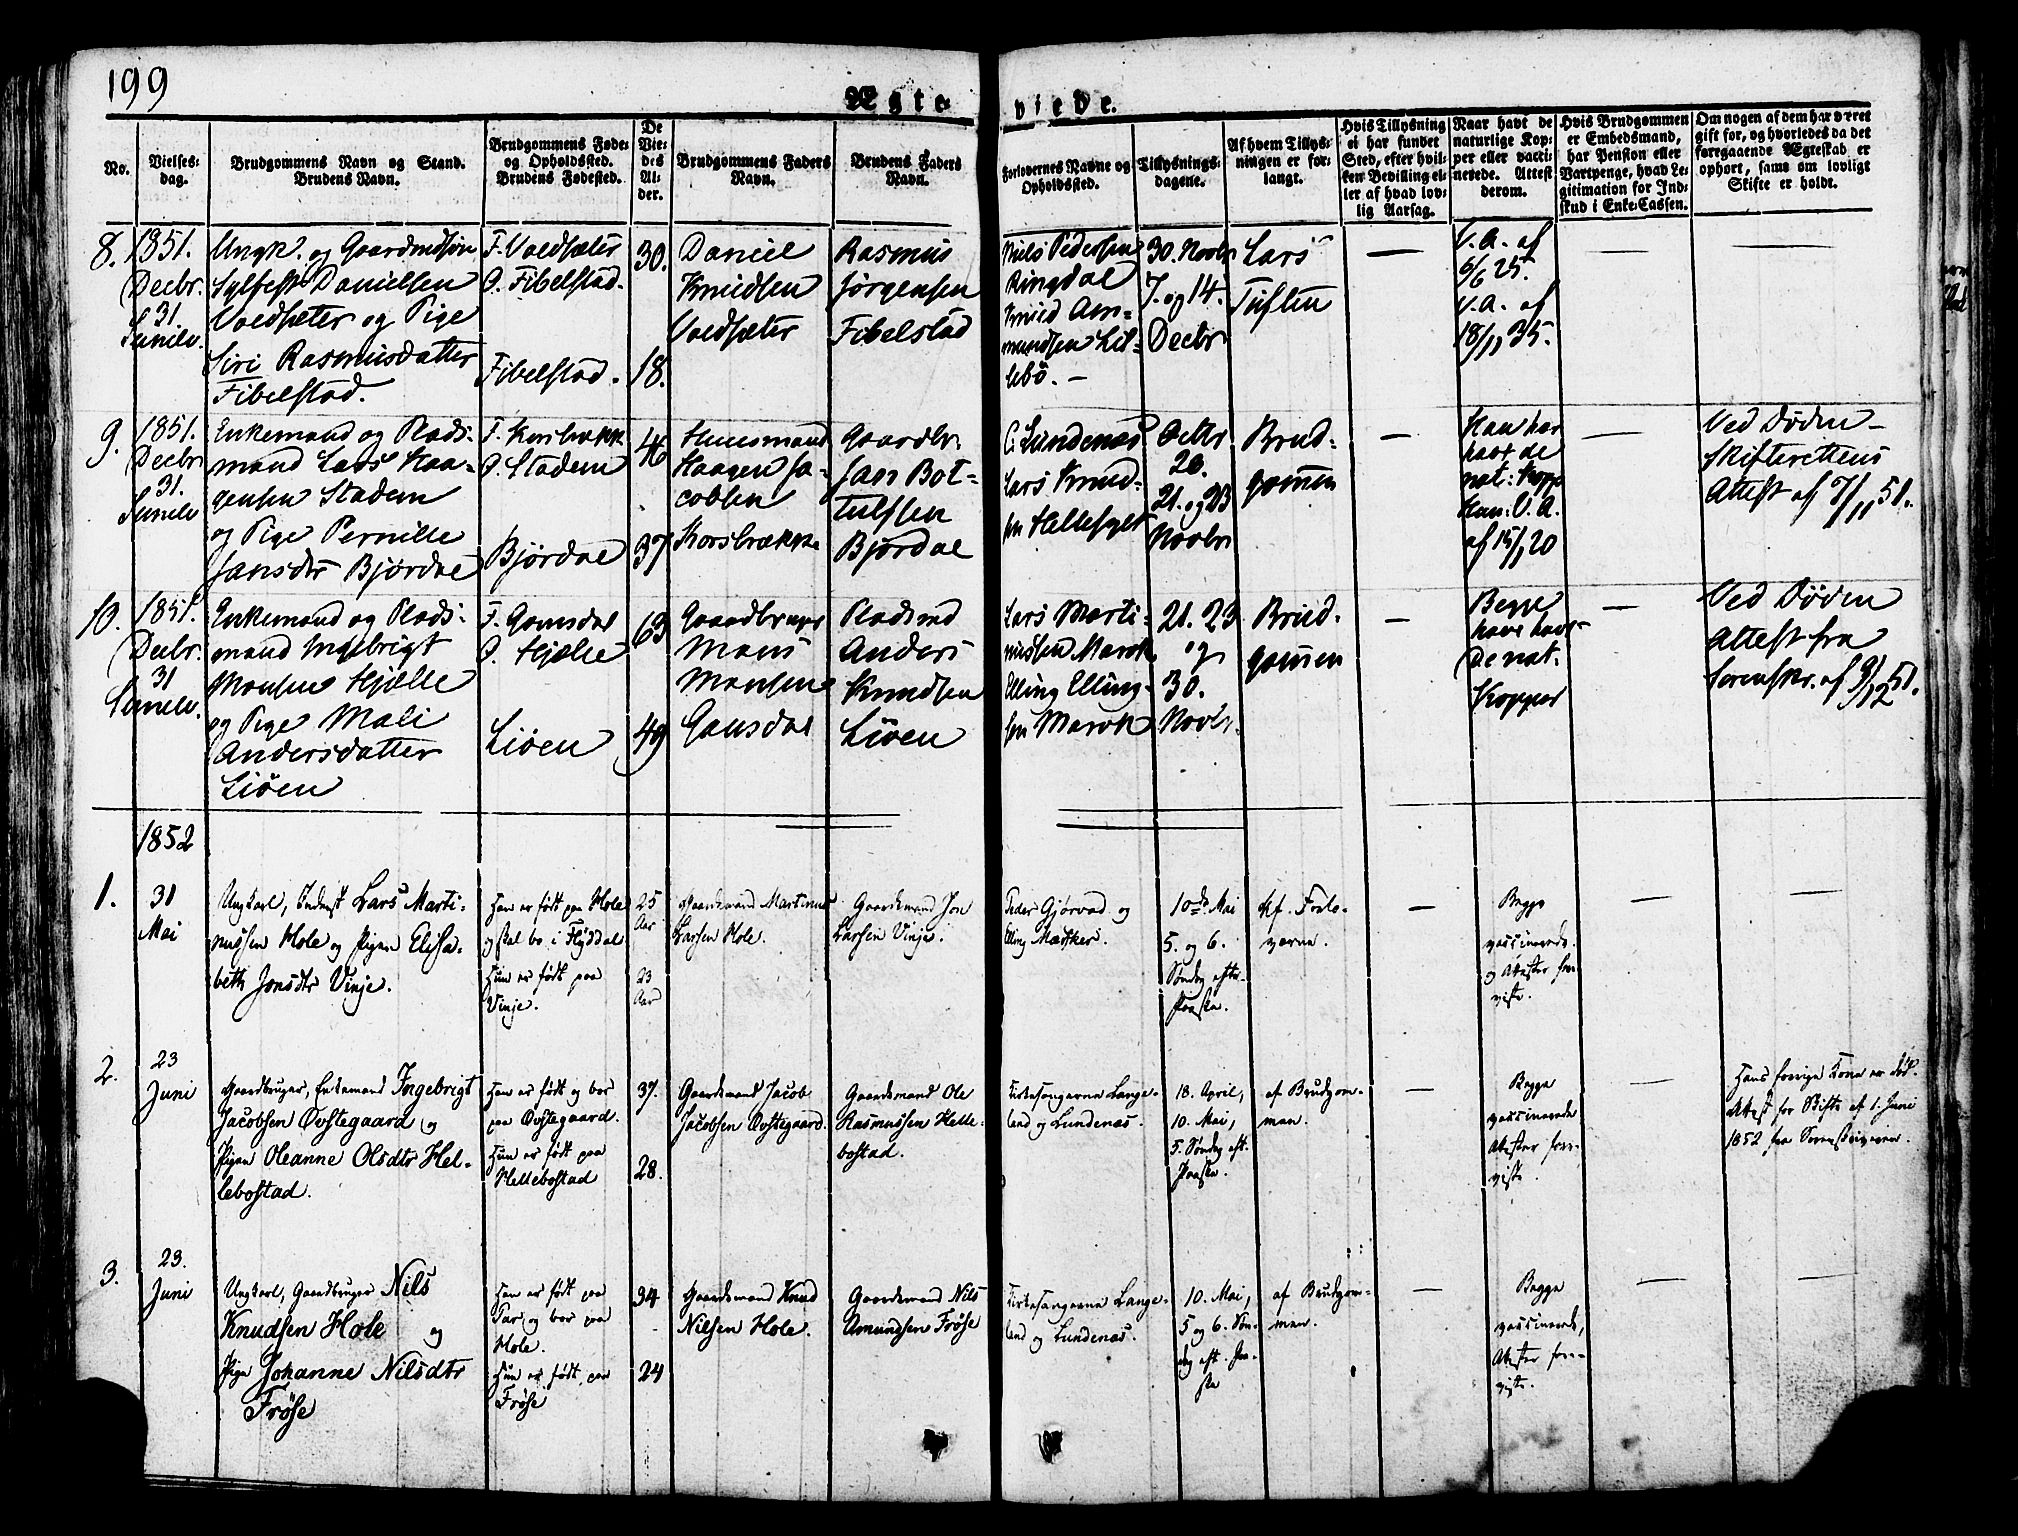 199
Ægteviede.
No.
Vielses-
dag.
Brudgommens Navn og Stand.
Brudens Navn.
Brudgommens Føde-
og Opholdssted.
Brudens Fødested.
De
Vie-
des
Al-
der.
Brudgommens Faders
Navn.
Brudens Faders
Navn.
Forlovernes Navne og
Opholdssted.
Tillysnings-
dagene.
Af hvem Tillys-
ningen er for-
langt.
Hvis Tillysning
ei har fundet
Sted, efter hvil-
ken Bevilling el-
ler af hvad lov-
lig Aarsag.
Naar havt de
naturlige Kop-
per eller vacci-
nerede. Attest
derom.
Hvis Brudgommen
er Embedsmand,
har Pension eller
Vartpenge, hvad Le-
gitimation for Ind-
skud i Enke-Cassen.
Om nogen af dem har været
gift før, og hvorledes da det
foregaaende Ægteskab er
ophørt, samt om lovligt
Skifte er holdt.
8.
1851.
Decbr.
31
Sunelv.
Ungk. og Gaardmdsøn
Sylfest Danielsen
Voldsæter og Pige
Siri Rasmusdatter
Fibelstad.
F. Voldsæter
O. Fibelstad.
Fibelstad.
30.
18.
Daniel
Knudsen
Voldsæter
Rasmus
Jørgensen
Fibelstad
Niels Pedersen
Ringdal
Knud Am-
mundsen Lil-
lebö. —
30. Novbr
7. og 14.
Decbr
Lars
Tuften
—
V. A. af
6/6 25.
V. A. af
18/11 35.
—
9.
1851.
Decbr
31.
Sunelv
Enkemand og Plads-
mand Lars Haa-
gensen Stadem
og Pige Pernille
Jansdtr Bjørdal
F. Korsbrække
O. Stadem
Bjørdal
46
37
Huusmand
Haagen Ja-
cobsen
Korsbrække
Gaardbr.
Jan Bot-
tulfsen
Bjørdal
C. Lundenæs
Lars Knud-
sen Hellesylt
Octbr
26.
21. og 23
Novbr
Brud-
gommen
—
Han har
havt de
nat: Kopp
Hun: V. A.
af 15/1 20
—
Ved Døden —
Skifterettens
Attest af 7/11 51.
10.
1851.
Decbr.
31
Sunelv.
Enkemand og Plads-
mand Ingebrigt
Monsen Hjælle
og Pige Mali
Andersdatter
Liöen
F. Gomsdal
O. Hjælle
Liöen
63
49
Gaardbruger
Mons
Monsen
Gomsdal
Pladsmd
Anders
Knudsen
Liöen
Lars Marti-
nussen Marok
Elling Elling-
sen Marok
21. 23
og
30.
Novbr.
Brud-
gommen
—
Begge
have havt
de nat.
Kopper
—
Ved Døden
Attest fra
Sorenskr. af 9/12 51.
1852
1.
31
Mai
Ungkarl, Inderst Lars Marti-
nussen Hole og Pigen Elisa-
beth Jonsdtr Vinje.
Han er født paa Hole
og skal bo i Flyddal
Hun er født paa
Vinje.
25
Aar
23
Aar
Gaardmand Martinus
Larsen Hole.
Gaardmand Jon
Larsen Vinje.
Peder Gjørvad og
Elling
10de Mai
5. og 6.
Søndag efter
Paaske.
kf. Forlo-
verne.
—
Begge
vaccinerede.
og Attester fore-
viste.
—
—
2.
23
Juni
Gaardbruger, Enkemand Ingebrigt
Jacobsen Ovstegaard og
Pigen Oleanne Olsdtr Hel-
lebostad.
Han er født og bor
paa Ovstegaard.
Hun er født paa
Hellebostad
37.
28.
Gaardmand Jacob
Jacobsen Ovstegaard.
Gaardmand Ole
Rasmussen Helle-
bostad.
Kirkesangerne Lange-
land og Lundenæs.
18. April,
10. Mai,
5. Søndag eft.
Paaske.
af Brudgom-
men.
—
Begge
vaccinerede
Attester fore-
viste.
—
Hans forrige Kone er død.
Attest for Skifte af 1. Juni
1852 fra Sorenskriveren.
3.
23.
Juni
Ungkarl, Gaardbruger Nils
Knudsen Hole og
Pige Johanne Nilsdtr
Frøse
Han er født paa
og bor paa
Hole.
Hun er født paa
Frøse
34
24
Gaardmand Knud
Nilsen Hole.
Gaardmand Nils
Amundsen Frøse
Kirkesangerne Lange-
land og Lundenæs.
10. Mai,
5 og 6. Søn-
dag eft. Paa-
ske
af Brudgom-
men.
—
Begge
vaccinerede,
Attester fore-
viste.
—
—